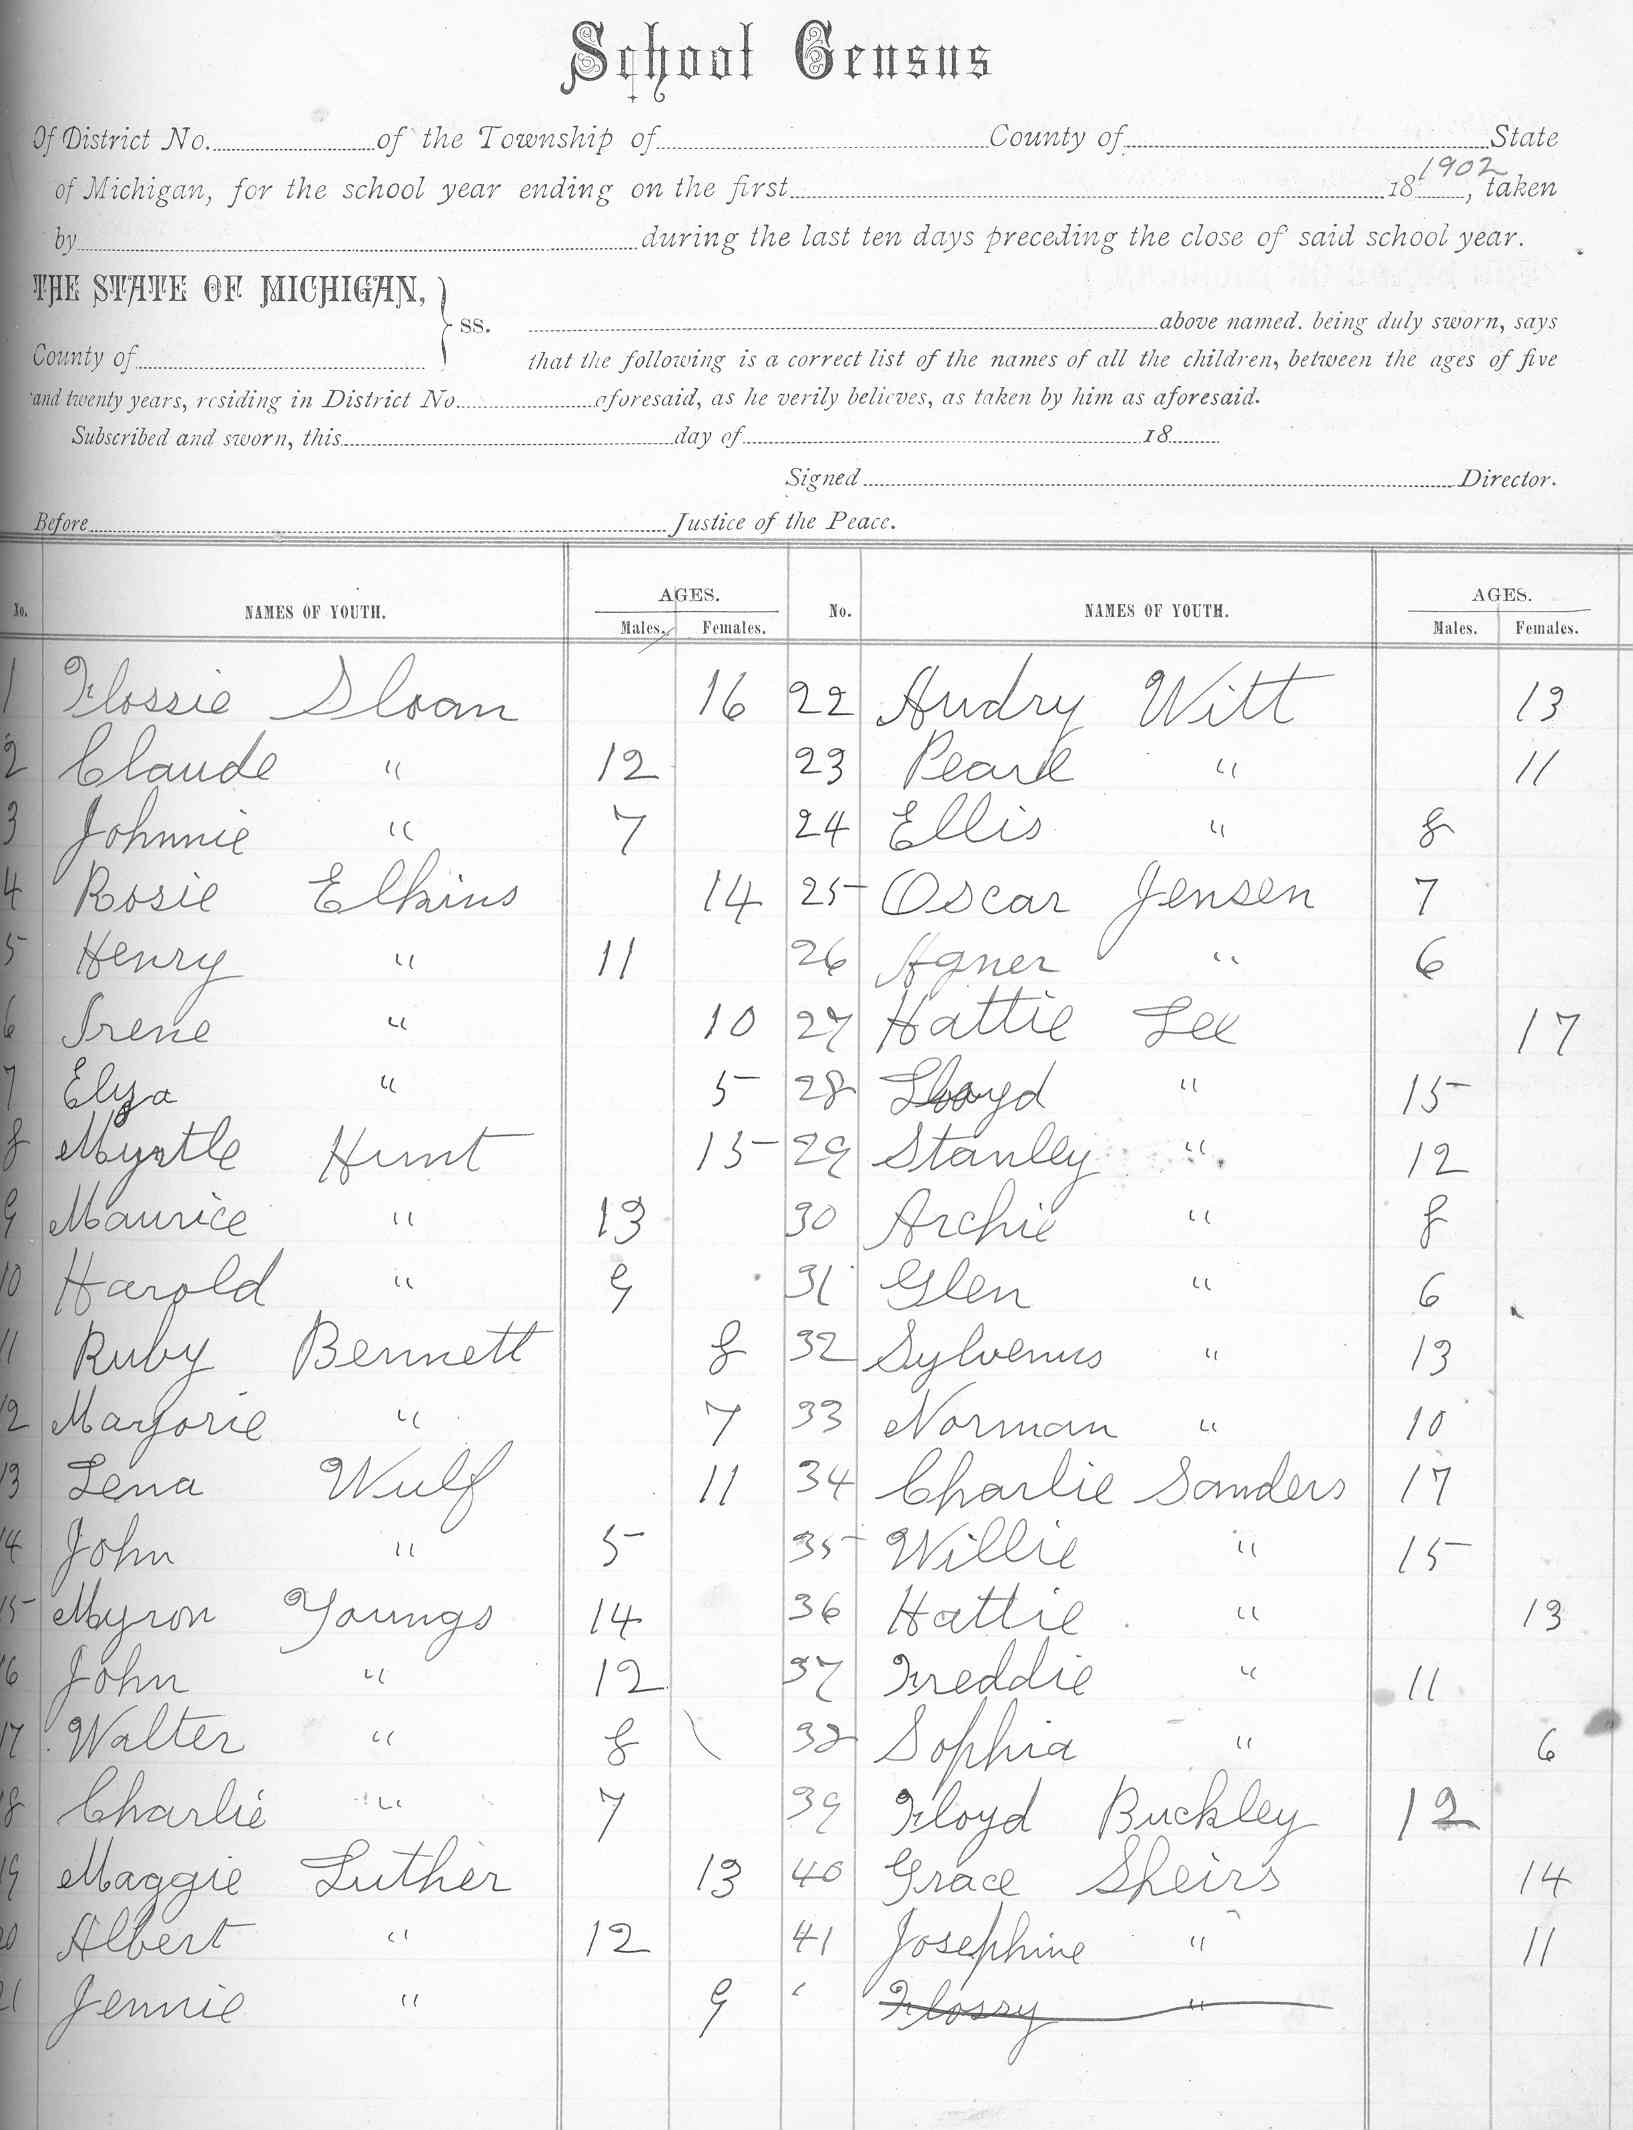 School Census
Of District No. of the Township of County of State
of Michigan, for the school year ending on the first 18 1902, taken
by during the last ten days preceding the close of said school year.
THE STATE OF MICHIGAN, } ss. above named. being duly sworn, says
County of that the following is a correct list of the names of all the children, between the ages of five
and twenty years, residing in District No. aforesaid, as he verily believes, as taken by him as aforesaid.
Subscribed and sworn, this day of 18
Signed Director.
Before Justice of the Peace.
No. NAMES OF YOUTH. AGES. Males. Females. No. NAMES OF YOUTH. AGES. Males. Females.
1 Flossie Sloan 16 22 Audry Witt 13
2 Claude " 12 23 Pearl " 11
3 Johnnie " 7 24 Ellis " 8
4 Rosie Elkins 14 25 Oscar Jensen 7
5 Henry " 11 26 Agner " 6
6 Irene " 10 27 Hattie Lee 17
7 Elza " 5 28 Lloyd " 15
8 Myrtle Hunt 15 29 Stanley " 12
9 Maurice " 13 30 Archie " 8
10 Harold " 9 31 Glen " 6
11 Ruby Bennett 8 32 Sylvenus " 13
12 Marjorie " 7 33 Norman " 10
13 Lena Wulf 11 34 Charlie Sanders 17
14 John " 5 35 Willie " 15
15 Myron Youngs 14 36 Hattie " 13
16 John " 12 37 Freddie " 11
17 Walter " 8 38 Sophia " 6
18 Charlie " 7 39 Floyd Buckley 12
19 Maggie Luther 13 40 Grace Sheirs 14
20 Albert " 12 41 Josephine " 11
21 Jennie " 9 Flossy "